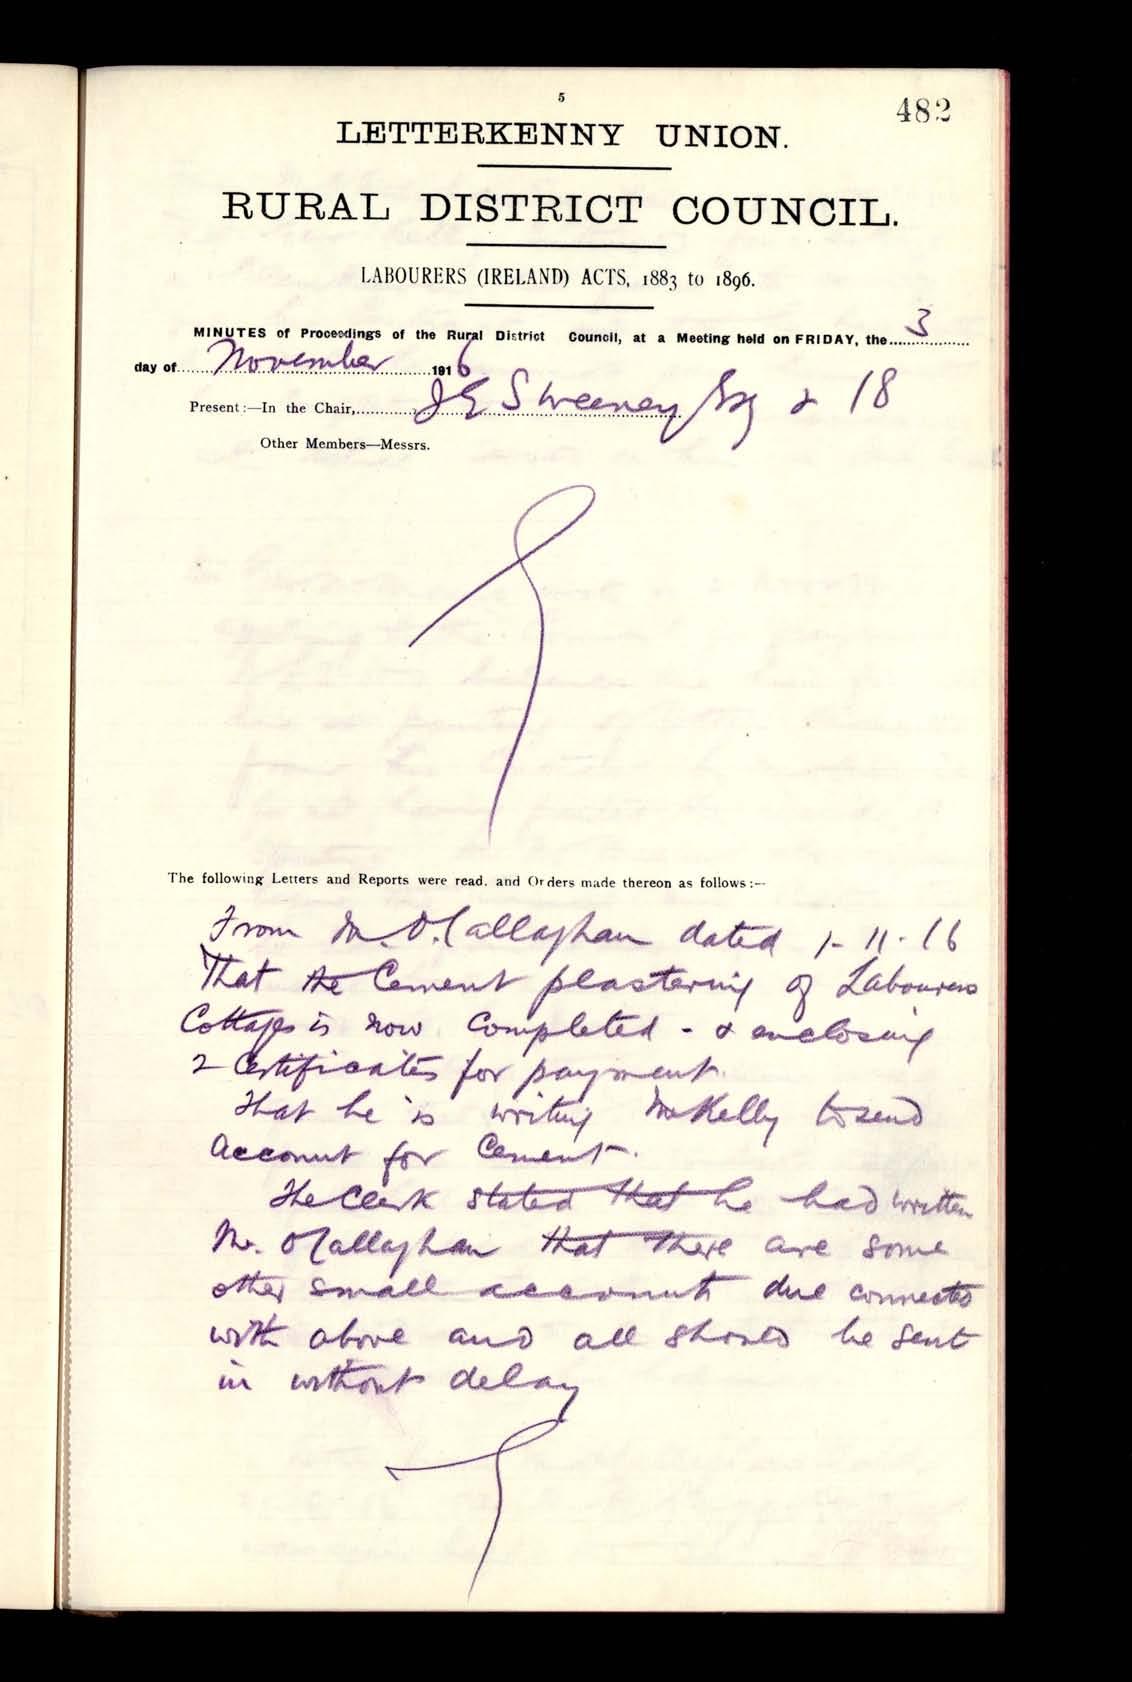 5
482
LETTERKENNY UNION.
RURAL DISTRICT COUNCIL.
LABOURERS (IRELAND) ACTS, 1883 to 1896.
MINUTES of Proceedings of the Rural District Council, at a Meeting held on FRIDAY, the 3
day of November 1916
Present:—In the Chair, J E Sweeney Esq & 18
Other Members—Messrs.
The following Letters and Reports were read, and Orders made thereon as follows:—
From M. O'Callaghan dated 1-11-16
That the Cement plastering of Labourers
Cottages is now completed - & enclosing
2 Certificates for payment.
That he is writing Mr Kelly to send
Account for Cement.
The Clerk stated that he had written
Mr. O'Callaghan that there are some
other small accounts due connected
with above and all should be sent
in without delay